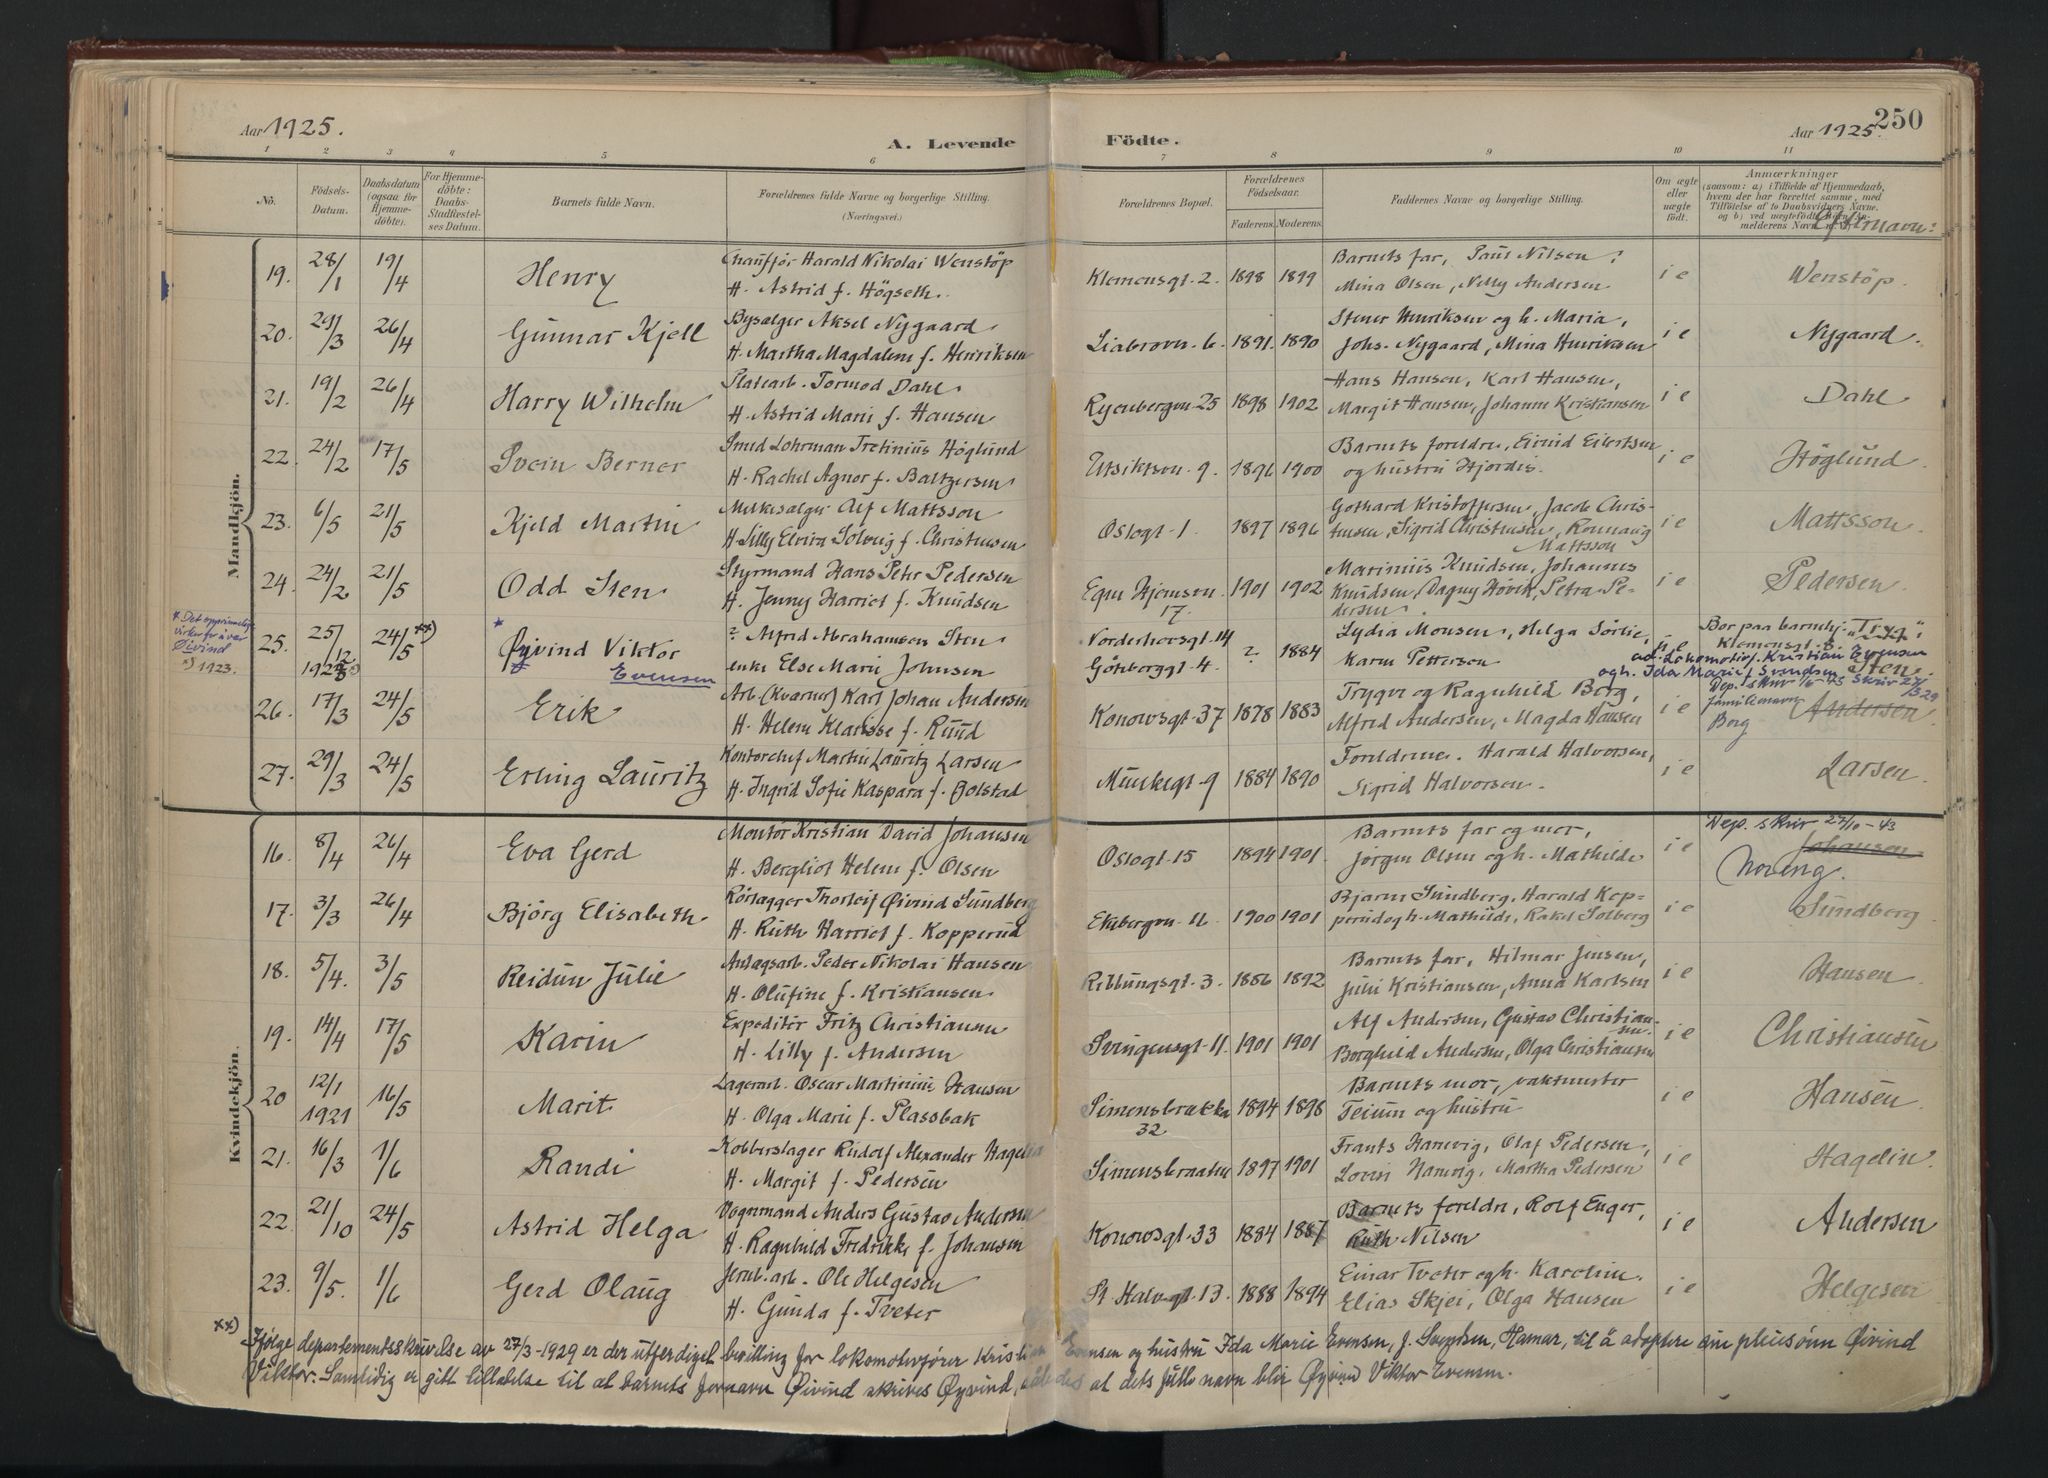 Aar 1925.
A. Levende Födte.
Aar 1925.
250
1 2 3 4 5 6 7 8 9 10 11
No. Födsels-Datum. Daabsdatum (ogsaa for Hjemmedöbte). For Hjemmedöbte: Daabs-Stadfestelses Datum. Barnets fulde Navn. Forældrenes fulde Navne og borgerlige Stilling. (Næringsvei.) Forældrenes Bopæl. Forældrenes Födselsaar. Faderens. Moderens. Faddernes Navne og borgerlige Stilling. Om ægte eller uægte födt. Anmærkninger
Efternavn:
Mandkjön.
19. 28/1 19/4 Henry Chauffør Harald Nikolai Wenstöp
H. Astrid f. Högseth. Klemensgt. 2. 1898 1899 Barnets far, Paul Nilsen,
Mina Olsen, Nelly Andersen i e Wenstöp.
20. 29/3 26/4 Gunnar Kjell Bysælger Aksel Nygaard
H. Martha Magdalene f. Henriksen Liabroven. 6. 1891. 1890 Stener Henriksen og h. Maria,
Johs. Nygaard, Mina Henriksen i e Nygaard.
21. 19/2 26/4 Harry Wilhelm Platearb. Tormod Dahl
H. Astrid Marie f. Hansen Ryenbergvn. 25 1898 1902 Hans Hansen, Karl Hansen,
Margit Hansen, Johanne Kristiansen i e Dahl
22. 24/2 17/5 Svein Berner Smed Lohrman Tretinius Höglund
H. Rachel Agnor f. Baltzersen Utsiktsvn. 9. 1896 1900 Barnets foreldre, Eivind Eilertsen
og hustru Hjordis. i e Höglund
23. 6/5 21/5 Kjeld Martin Melkesælger Alf Mattsson
H. Lilly Elvira Solveig f. Christensen Oslogt. 1. 1897 1896 Gothard Kristoffersen, Jacob Chris-
tensen, Sigrid Christensen, Ronnaug
Mattsson i e Mattsson
24. 24/2 21/5 Odd Sten Styrmand Hans Peter Pedersen
H. Jenny Harriet f. Knudsen Egne Hjemsvn.
17. 1901 1902 Marinius Knudsen, Johannes
Knudsen, Dagny Hövik, Petra Pe-
dersen i e Pedersen
* Det opprinnelige
virker før å vær
Øivind
*) 1923.
25. 25/12 192 24/5 xx) Øyvind Viktor
Evensen ? Alfred Abrahamsen Sten
enke Else Marie Johnsen Norderhovsgt. 14
Göteborggt. 4. ? 1884 Lydia Monsen, Helga Sörlie,
Karen Pettersen u e Bor paa barnehj. "Tryg":
Klemensgt. 8.
ad. Lokomotivf. Kristian Evensen
og h. Ida Marie f. Svendsen skriv 27/3 29
Sten.
26. 17/3 24/5 Erik Arb. (Kværner) Karl Johan Andersen
H. Helene Klarisse f. Ruud Konowsgt. 37 1878 1883 Trygve og Ragnhild Borg,
Alfred Andersen, Magda Hansen i e Dep. skriv 45
familienavn
Borg Andersen
27. 29/3 24/5 Erling Lauritz Kontorchef Martin Lauritz Larsen
H. Ingrid Sofie Kaspara f. Bolstad Munkegt. 9 1884 1890 Foreldrene. Harald Halvorsen,
Sigrid Halvorsen. i e Larsen
Kvindekjön.
16. 8/4 26/4 Eva Gerd Montör Kristian David Johansen
H. Bergliot Helene f. Olsen Oslogt. 15 1894 1901 Barnets far og mor,
Jörgen Olsen og h. Mathilde i e Dep. skriv 27/10-43
Johansen
Noreng.
17. 3/3 26/4 Björg Elisabeth. Rörlægger Thorleif Øivind Sundberg
H. Ruth Harriet f. Kopperud Ekebergvn. 11 1900 1901 Bjarne Sundberg, Harald Kop-
perud og h. Mathilde, Rakel Solberg i e Sundberg
18. 5/4. 3/5 Reidun Julie Anlægsarb. Peder Nikolai Hansen
H. Olufine f. Kristiansen. Ribbungsgt. 3. 1886 1892 Barnets far, Hilmar Jensen,
Julie Kristiansen, Anna Karlsen i e Hansen
19. 14/4 17/5 Karin Expeditör Fritz Christiansen
H. Lilly f. Andersen Svingensgt. 11. 1901 1901 Alf Andersen, Gustav Christian-
sen. Borghild Andersen, Olga Christiansen i e Christiansen
20 12/1 1921 16/5 Marit Lagerarb. Oscar Martinius Hansen
H. Olga Marie f. Plassbak Simensbrækka
32 1894 1898 Barnets mor, vaktmester
Teium og hustru i e Hansen
21. 16/3 1/6 Randi Kobberslager Rudolf Alexander Hagelin
H. Margit f. Pedersen Simensbraaten 1897 1901 Frants Hamvig, Olaf Pedersen,
Lovise Hamvig, Martha Pedersen i e Hagelin.
22. 21/10 24/5 Astrid Helga Vognmand Anders Gustav Andersen
H. Ragnhild Fredrikke f. Johansen Konowsgt. 33 1884 1887 Barnets foreldre, Rolf Enger,
Ruth Nilsen i e Andersen
23. 9/5. 1/6 Gerd Olaug Jernb. arb. Ole Helgesen
H. Gunda f. Tveter St. Halv.gt. 13. 1888 1894 Einar Tveter og h. Karoline.
Elias Skjei, Olga Hansen i e Helgesen
xx) Ifølge departementsskrivelse av 27/3-1929 er der utferdiget bevilling for lokomotivfører Kristian Evensen og hustru Ida Marie Evensen, f. Svendsen, Hamar, til å adoptere sin pleiesønn Øivind
Viktor. Samtidig er gitt tillatelse til at barnets fornavn Øivind skrives Øyvind, således at dets fulle navn blir Øyvind Viktor Evensen.